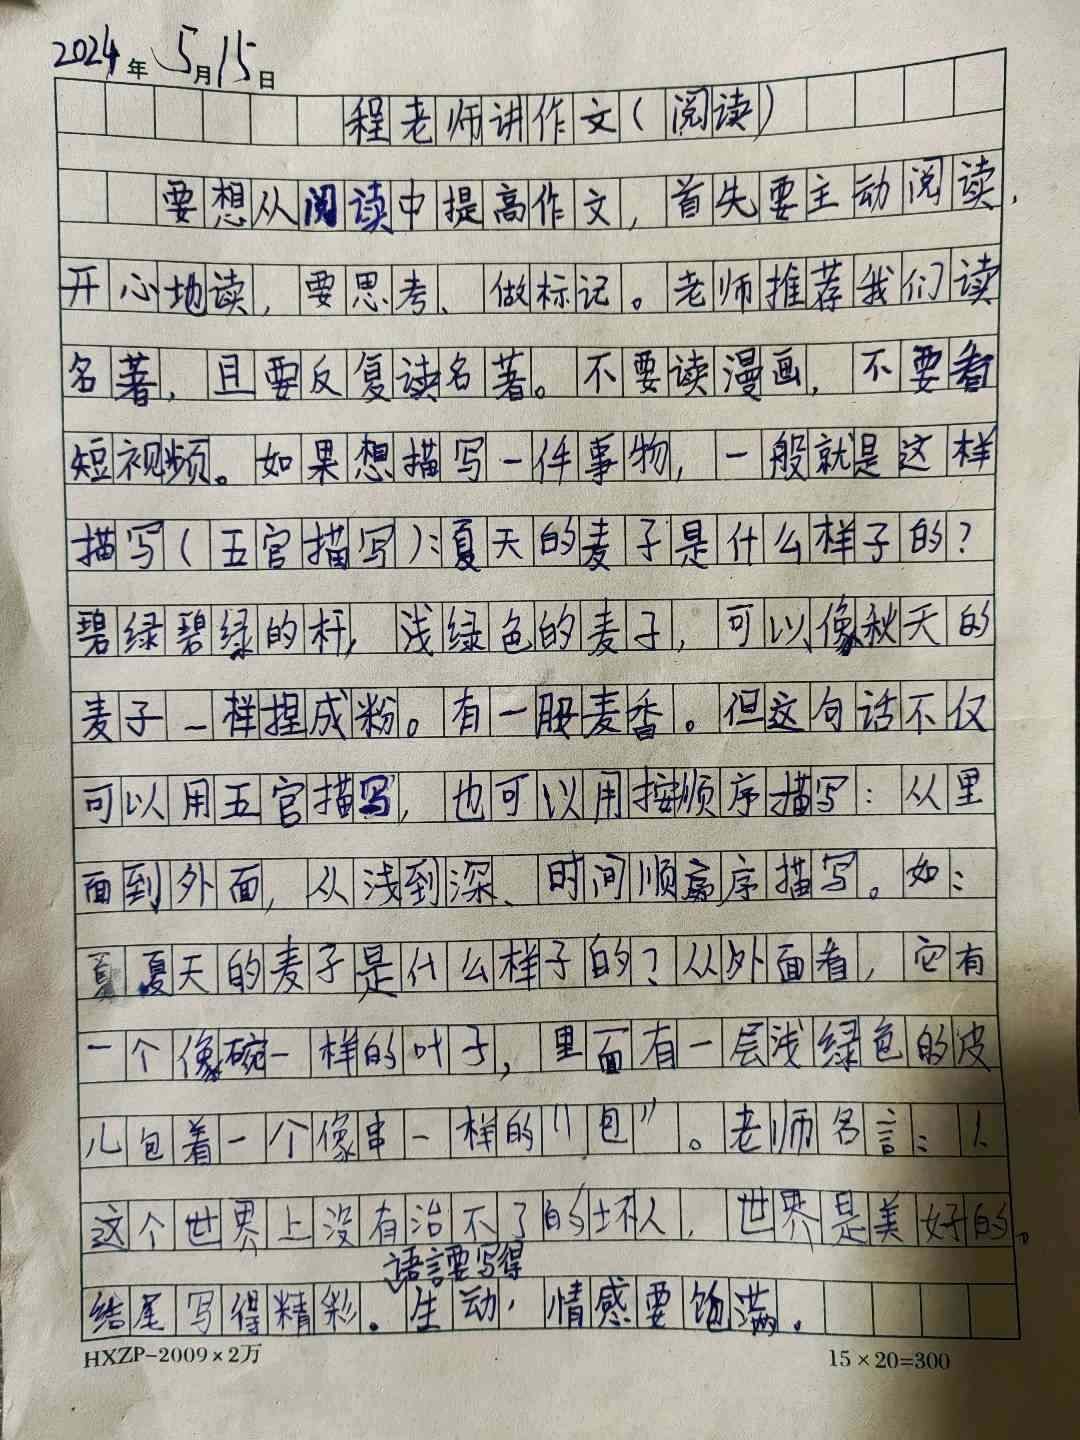 2024年5月15日
程老师讲作文(阅读)
要想从阅读中提高作文,首先要主动阅读,
开心地读,要思考、做标记。老师推荐我们读
名著,且要反复读名著。不要读漫画,不要看
短视频。如果想描写一件事物,一般就是这样
描写(五官描写):夏天的麦子是什么样子的?
碧绿碧绿的杆,浅绿色的麦子,可以像秋天的
麦子一样捏成粉。有一股麦香。但这句话不仅
可以用五官描写,也可以用按顺序描写:从里
面到外面,从浅到深、时间顺序序描写。如:
夏夏天的麦子是什么样子的?从外面看,它有
一个像碗一样的叶子,里面有一层浅绿色的皮
儿包着一个像串一样的“包”。老师名言:人
这个世界上没有治不了的坏人,世界是美好的。
语言要写得
结尾写得精彩.生动,情感要饱满.
HXZP-2009×2万 15×20=300